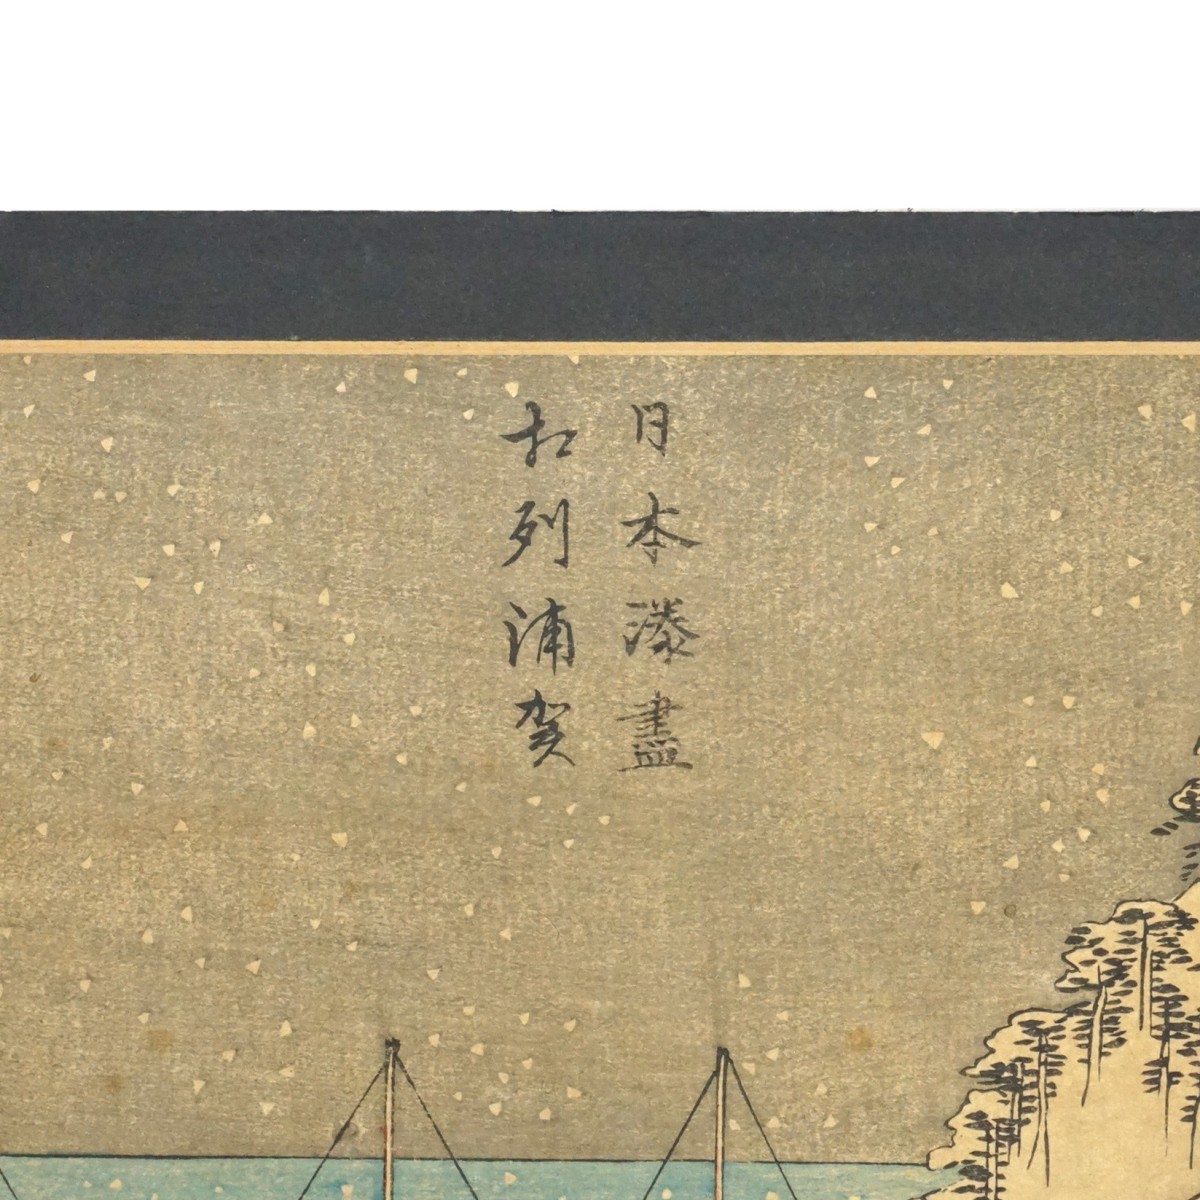 日本湊盡
相州浦賀